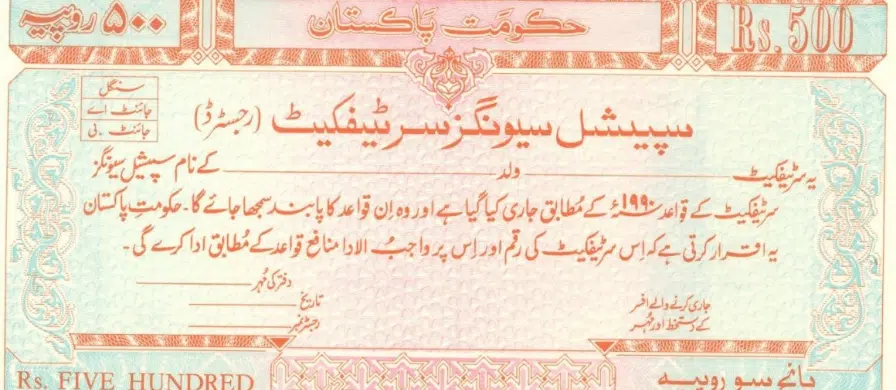 ۵۰۰ روپیہ
حکومتِ پاکستان
Rs. 500
سنگل
جائنٹ اے
جائنٹ ۔ بی
سپیشل سیونگز سرٹیفکیٹ (رجسٹرڈ)
یہ سرٹیفکیٹ ولد کے نام سپیشل سیونگز
سرٹیفکیٹ کے قواعد ۱۹۹۰ء کے مُطابق جاری کیا گیا ہے اور وہ اِن قواعد کا پابند سمجھا جائے گا۔ حکومتِ پاکستان
یہ اقرار کرتی ہے کہ اِس سرٹیفکیٹ کی رقم اور اِس پر واجبُ الادا منافع قواعد کے مُطابق ادا کرے گی۔
دفتر کی مُہر
تاریخ
رجسٹر نمبر
جاری کرنے والے افسر
کے دستخط اور مُہر
Rs. FIVE HUNDRED
پانچ سو روپیہ